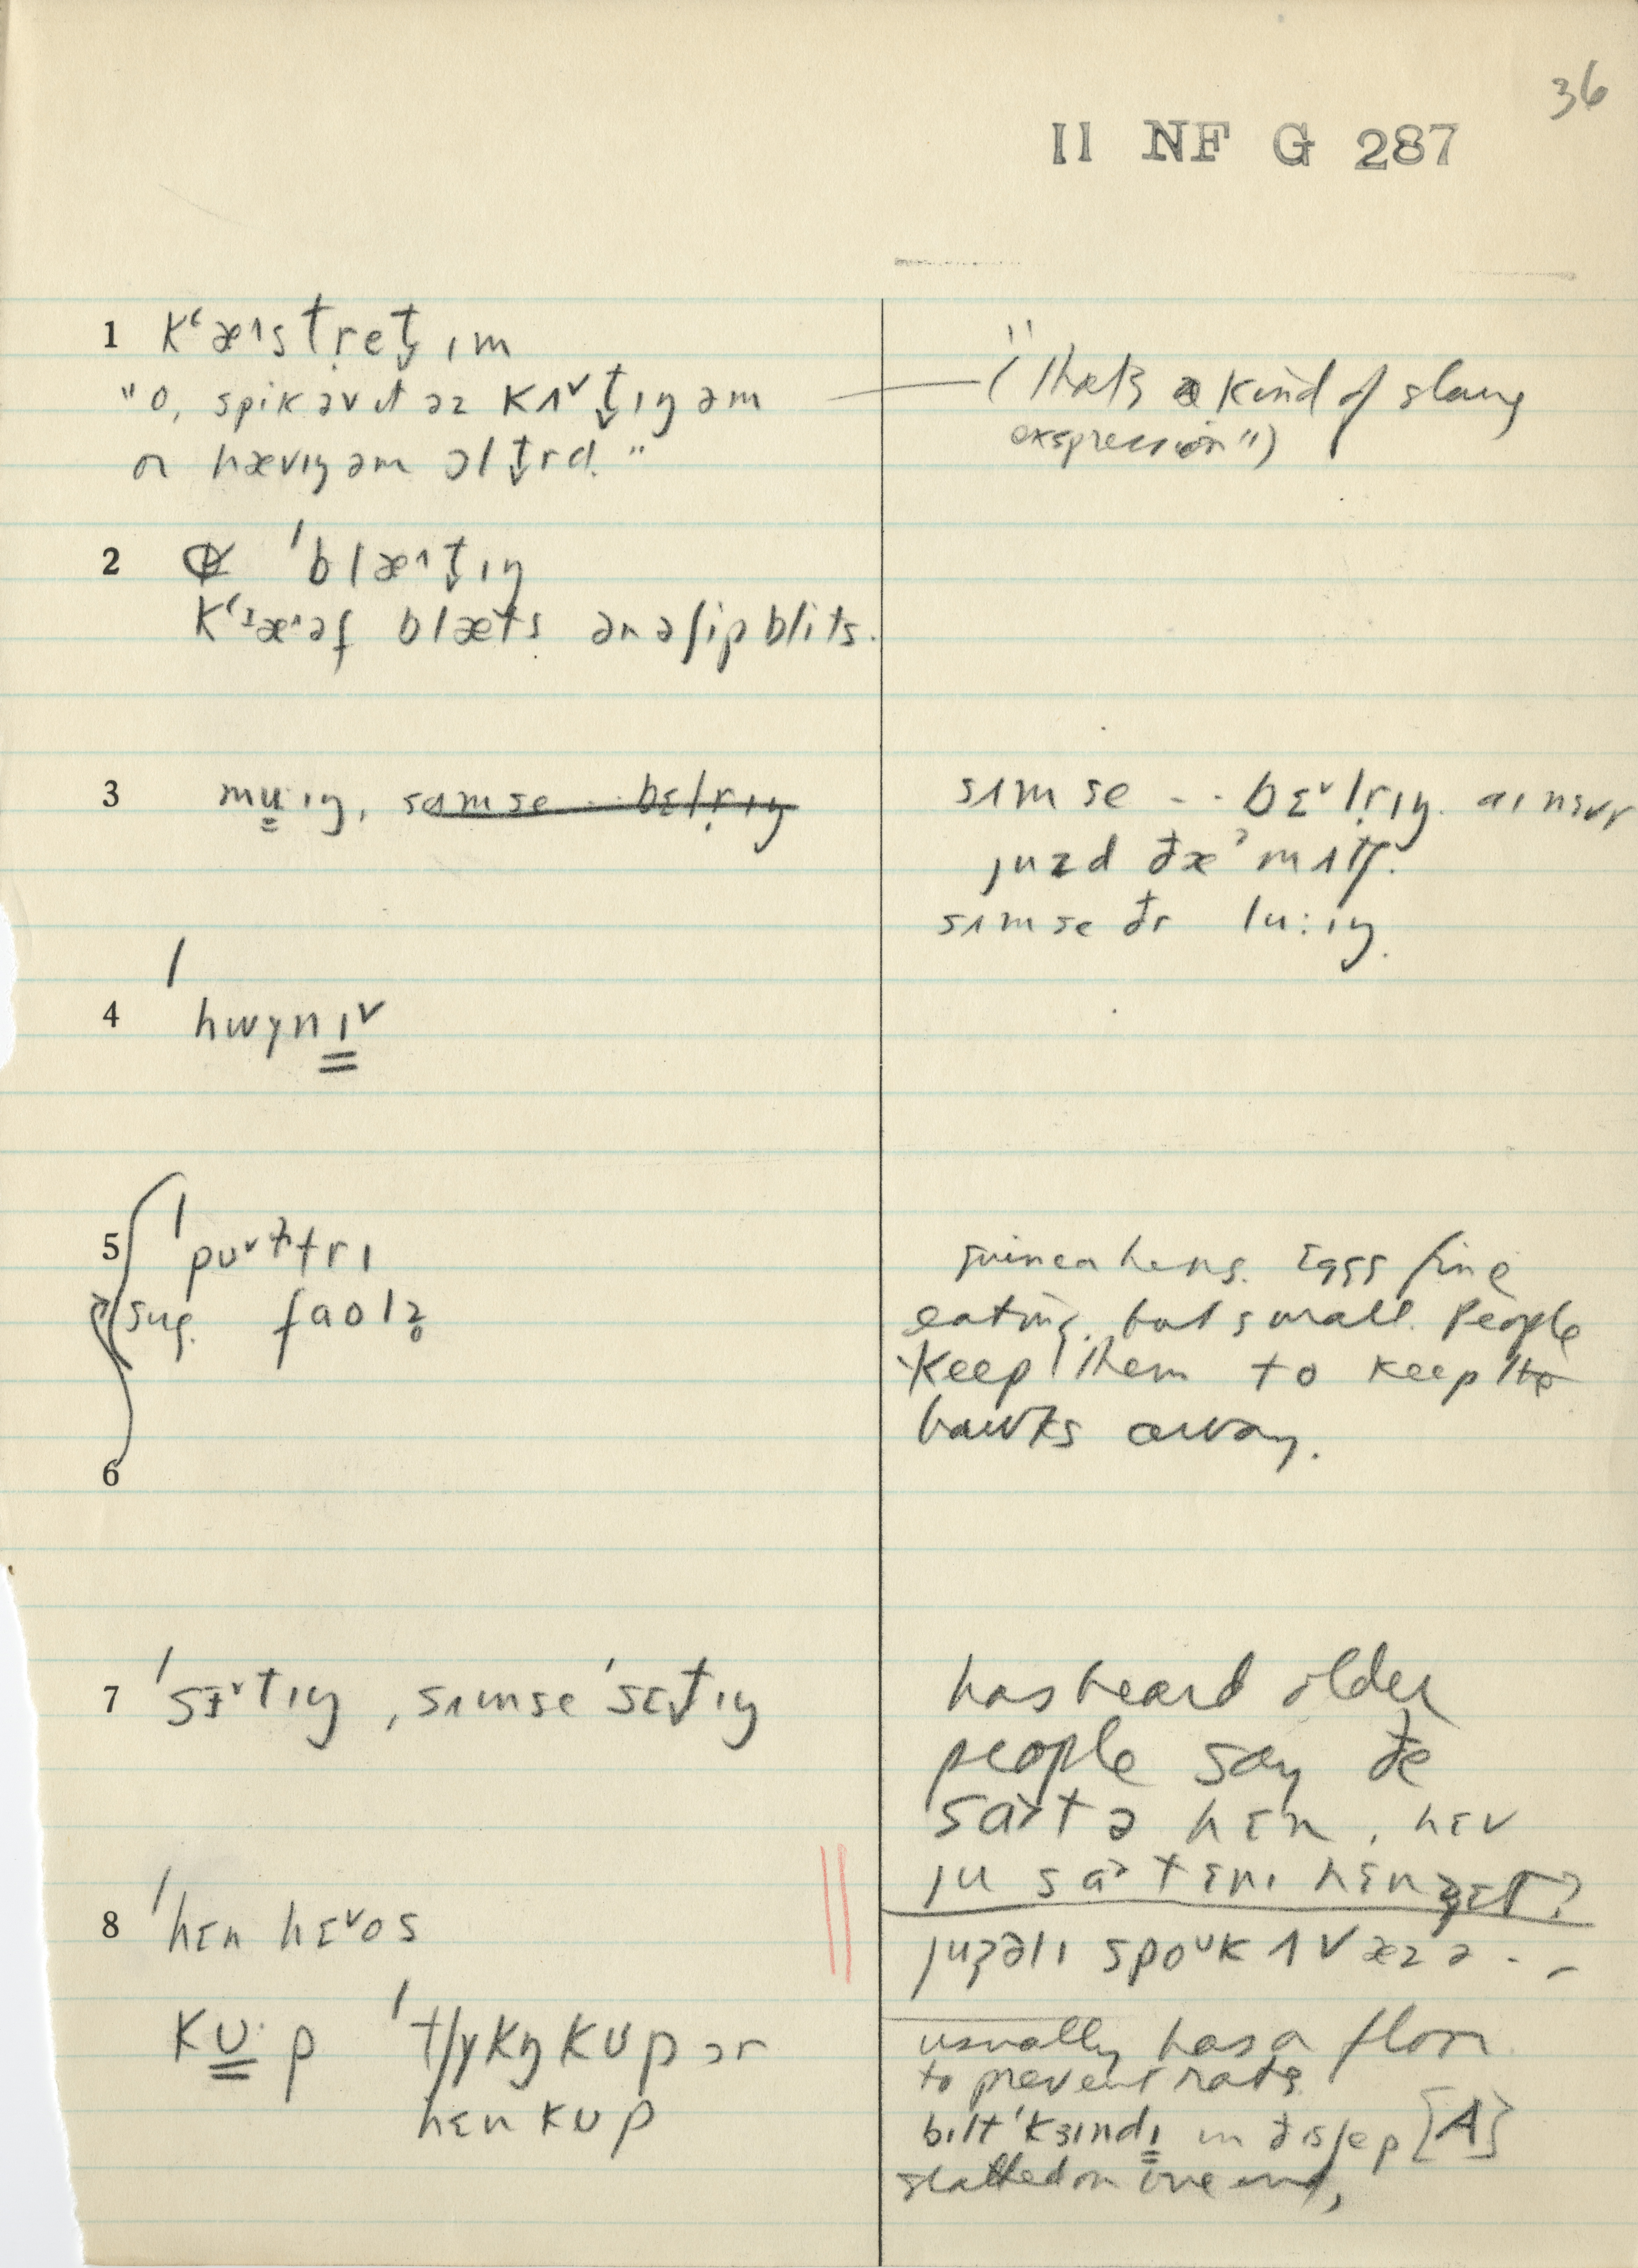 36
II NF G 287
1 kʻæ˄stṛet̬ ɪm
"o, spik əv ɪt əz kʌ˅t̬ɪŋ əm
ɒ hævɪŋ əm ɔlt̬rd."
("that's a kind of slang
expression")
2 ˈblæ˄t̬ɪŋ
kʻɪæ˄əf blæts ən ə ʃip blits.
3 mu̳·ɪŋ, sʌm se -- bɛlṛɪŋ
sʌm se -- bɛ˅lṛɪŋ. aɪ nɛvr
juzd ðæˀ mʌtʃ.
sʌm se ðr lu:ɪŋ.
4 ˈhwɪnɪ̳˅
5 ˈpʊ˅ltrɪ
sug. faolz̥
guinea hens. Eggs fine
eating, but small. People
keep them to keep the
hawks away.
6
7 ˈsɛ˅tɪŋ, sʌm se ˈsɛt̬ɪŋ
has heard older
people say ðe
sa˃t ə hɛn, hɛv
ju sa˃t ɛnɪ hɛnz jɛt?
8 ˈhɛn hɛ˅os
juʒəlɪ spoᵘk ʌv æz ə --
kʊ̳·p ˈtʃɪkŋ kʊp ɔr
hɛn kʊp
usually has a floor
to prevent rats
bɪlt ˈkɜɪndɪ̳ in ðɪs ʃep [A]
slatted on one end,